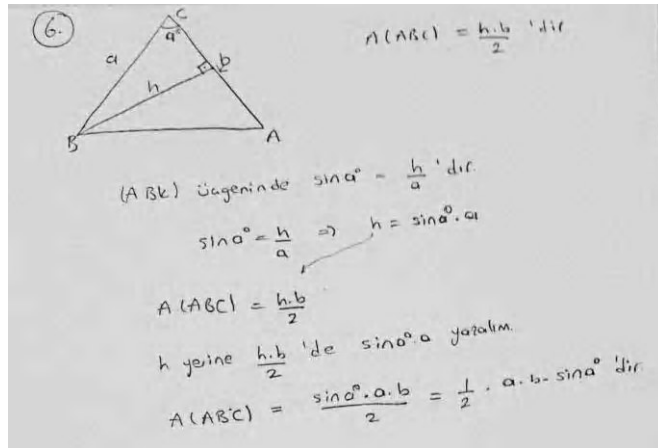 6.
C
A(ABC) = h.b/2 'dir
a
a°
b
h
B
A
(ABK) üçgeninde sina° = h/a 'dır.
sina° = h/a => h = sina°.a
A(ABC) = h.b/2
h yerine h.b/2 'de sina°.a yazalım.
A(ABC) = sina°.a.b/2 = 1/2 . a.b.sina° 'dir